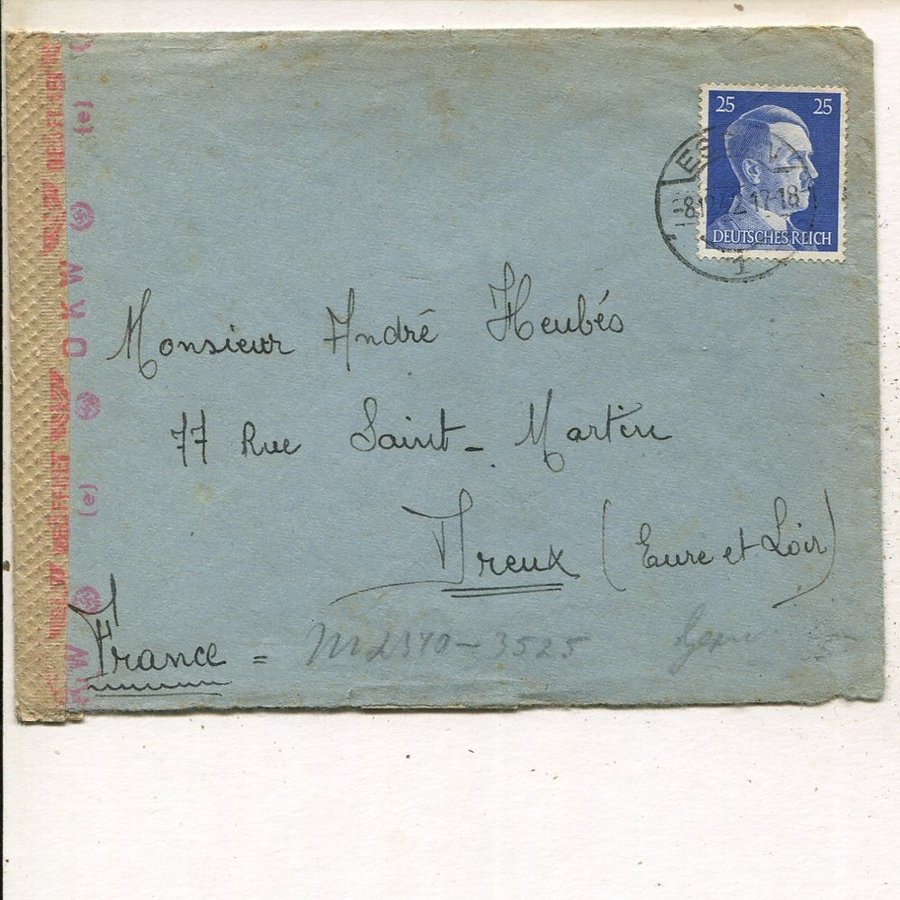 25 25
DEUTSCHES REICH
17-18
1
Monsieur André Heubés
77 Rue Saint-Martin
Dreux (Eure et Loir)
France = 2340-3525
(e)
O K W
(e)